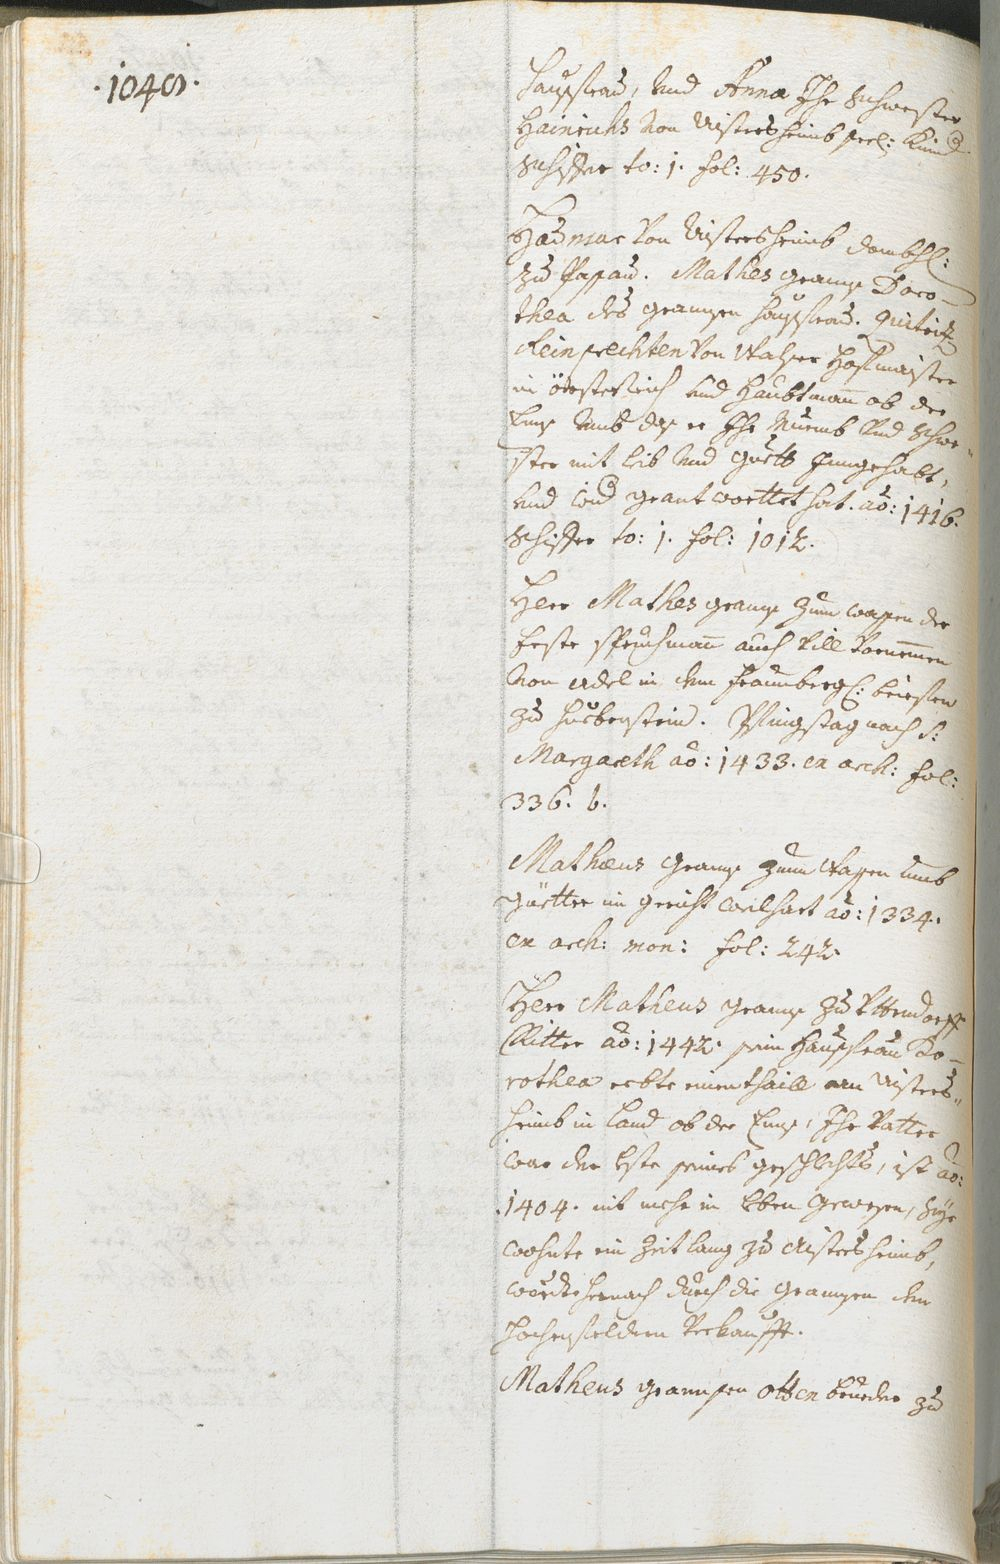 .1048.
haußfrau, und Anna Ihr Schwester
Hainrichs von Aistershaimb seel: Kind
Schiffer to: 1. fol: 450.
Hadmar von Aistershaimb dombh:
zu Passau. Mathes granß Doro-
thea des granßen haußfrau. Quitirt
Reinprechten von Walßee Hofmaister
in össterreich und Haubtman ob der
Enns umb das er Ihr Muemb und Schwe-
ster mit leib und guett Inngehabt,
und geantworttet hat. ao: 1416.
Schiffer to: 1. fol: 1012.
Herr Mathes granß zum wapen der
Erste spruchman auch vill vornemmen
von adel in dem fraunberg: briefen
zu Huebenstein. Pfingstag nach S:
Margareth ao: 1433. ex arch: fol:
336. b.
Mathæus granß zum Wapen umb
güetter im gericht weilhart ao: 1334.
ex arch: mon: fol: 242.
Herr Matheus granß zu Uttendorff
Ritter ao: 1442. sein Haußfrau Do-
rothea erbte einen thaill an Aisters-
heimb in land ob der Enns, Ihr Vatter
war der leste seines geschlechts, ist ao:
.1404. nit mehr in leben gewesen, Sye
wohnte ein Zeit lang zu Aistersheimb,
wurde hernach durch die granßen den
Hochenfeldern verkaufft.
Matheus granßen Otten brueder zu